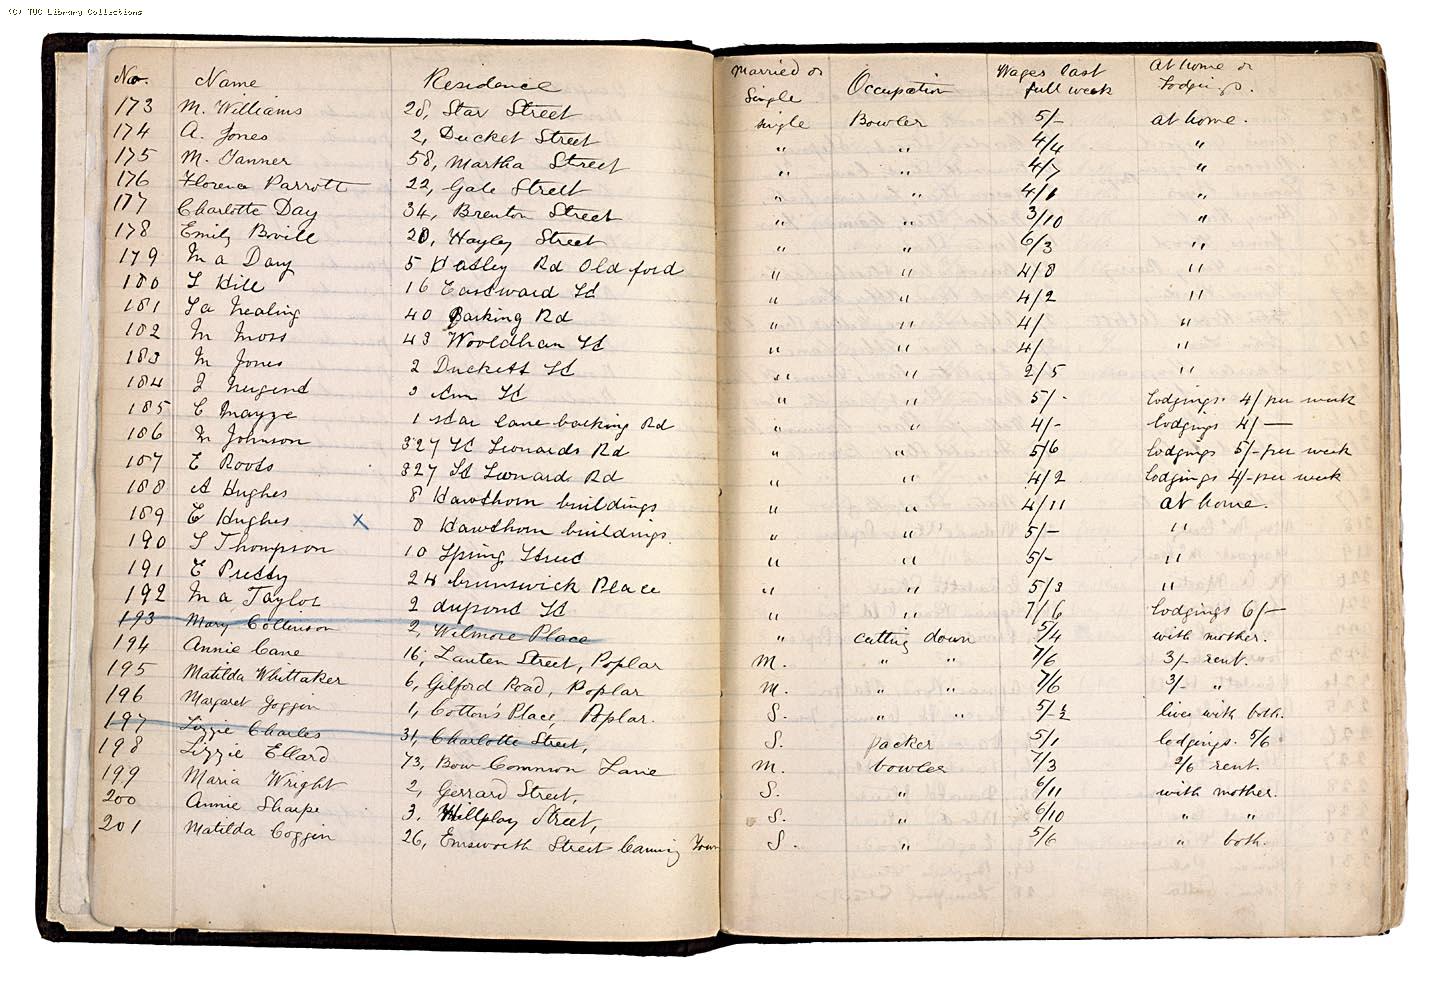 (C) TUC Library Collections
No. Name Residence Married or Single Occupation Wages last full week At home or Lodgings.
173 M. Williams 28, Star Street single Bowler 5/- at home.
174 A. Jones 2, Ducket Street " " 4/4 "
175 M. Tanner 58, Martha Street " " 4/7 "
176 Florence Parrott 22, Gale Street " " 4/1 "
177 Charlotte Day 34, Brenton Street " " 3/10 "
178 Emily Bovill 20, Hayley Street " " 6/3 "
179 M a Day 5 Hatley Rd Old ford " " 4/8 "
180 S Hill 16 Eastward St " " 4/2 "
181 S a Nealing 40 Barking Rd " " 4/ "
182 M Moss 43 Wooldham St " " 4/ "
183 M Jones 2 Duckett St " " 2/5 "
184 J Nugend 3 Ann St " " 5/- lodgings 4/ per week
185 C Mayze 1 star lane barking Rd " " 4/- lodgings 4/—
186 M Johnson 327 St Leonards Rd " " 5/6 lodgings 5/- per week
187 E Roods 327 St Leonard Rd " " 4/2 lodgings 4/- per week
188 A Hughes 8 Hawthorn buildings " " 4/11 at home.
189 E Hughes x 8 Hawthorn buildings " " 5/- "
190 S Thompson 10 Spring Street " " 5/- "
191 E Pretty 24 brunswick Place " " 5/3 "
192 M a Taylor 2 dupont St " " 7/6 lodgings 6/-
193 Mary Collinson 2, Wilmore Place " cutting down 5/4 with mother.
194 Annie Cane 16, Lauten Street, Poplar M. " " 7/6 3/- rent.
195 Matilda Whittaker 6, Gilford Road, Poplar M. " " 7/6 3/- "
196 Margaret Joggin 1, Cotton's Place, Poplar. S. " " 5/½ lives with both.
197 Lizzie Charles 31, Charlotte Street, S. packer 5/1 lodgings. 5/6
198 Lizzie Ellard 73, Bow Common Lane M. bowler 7/3 2/6 rent.
199 Maria Wright 2, Gerrard Street, S. " 6/11 with mother.
200 Annie Sharpe 3, Street, S. " 6/10 " "
201 Matilda Coggin 26, Emsworth Street Canning Town S. " 5/6 " both.